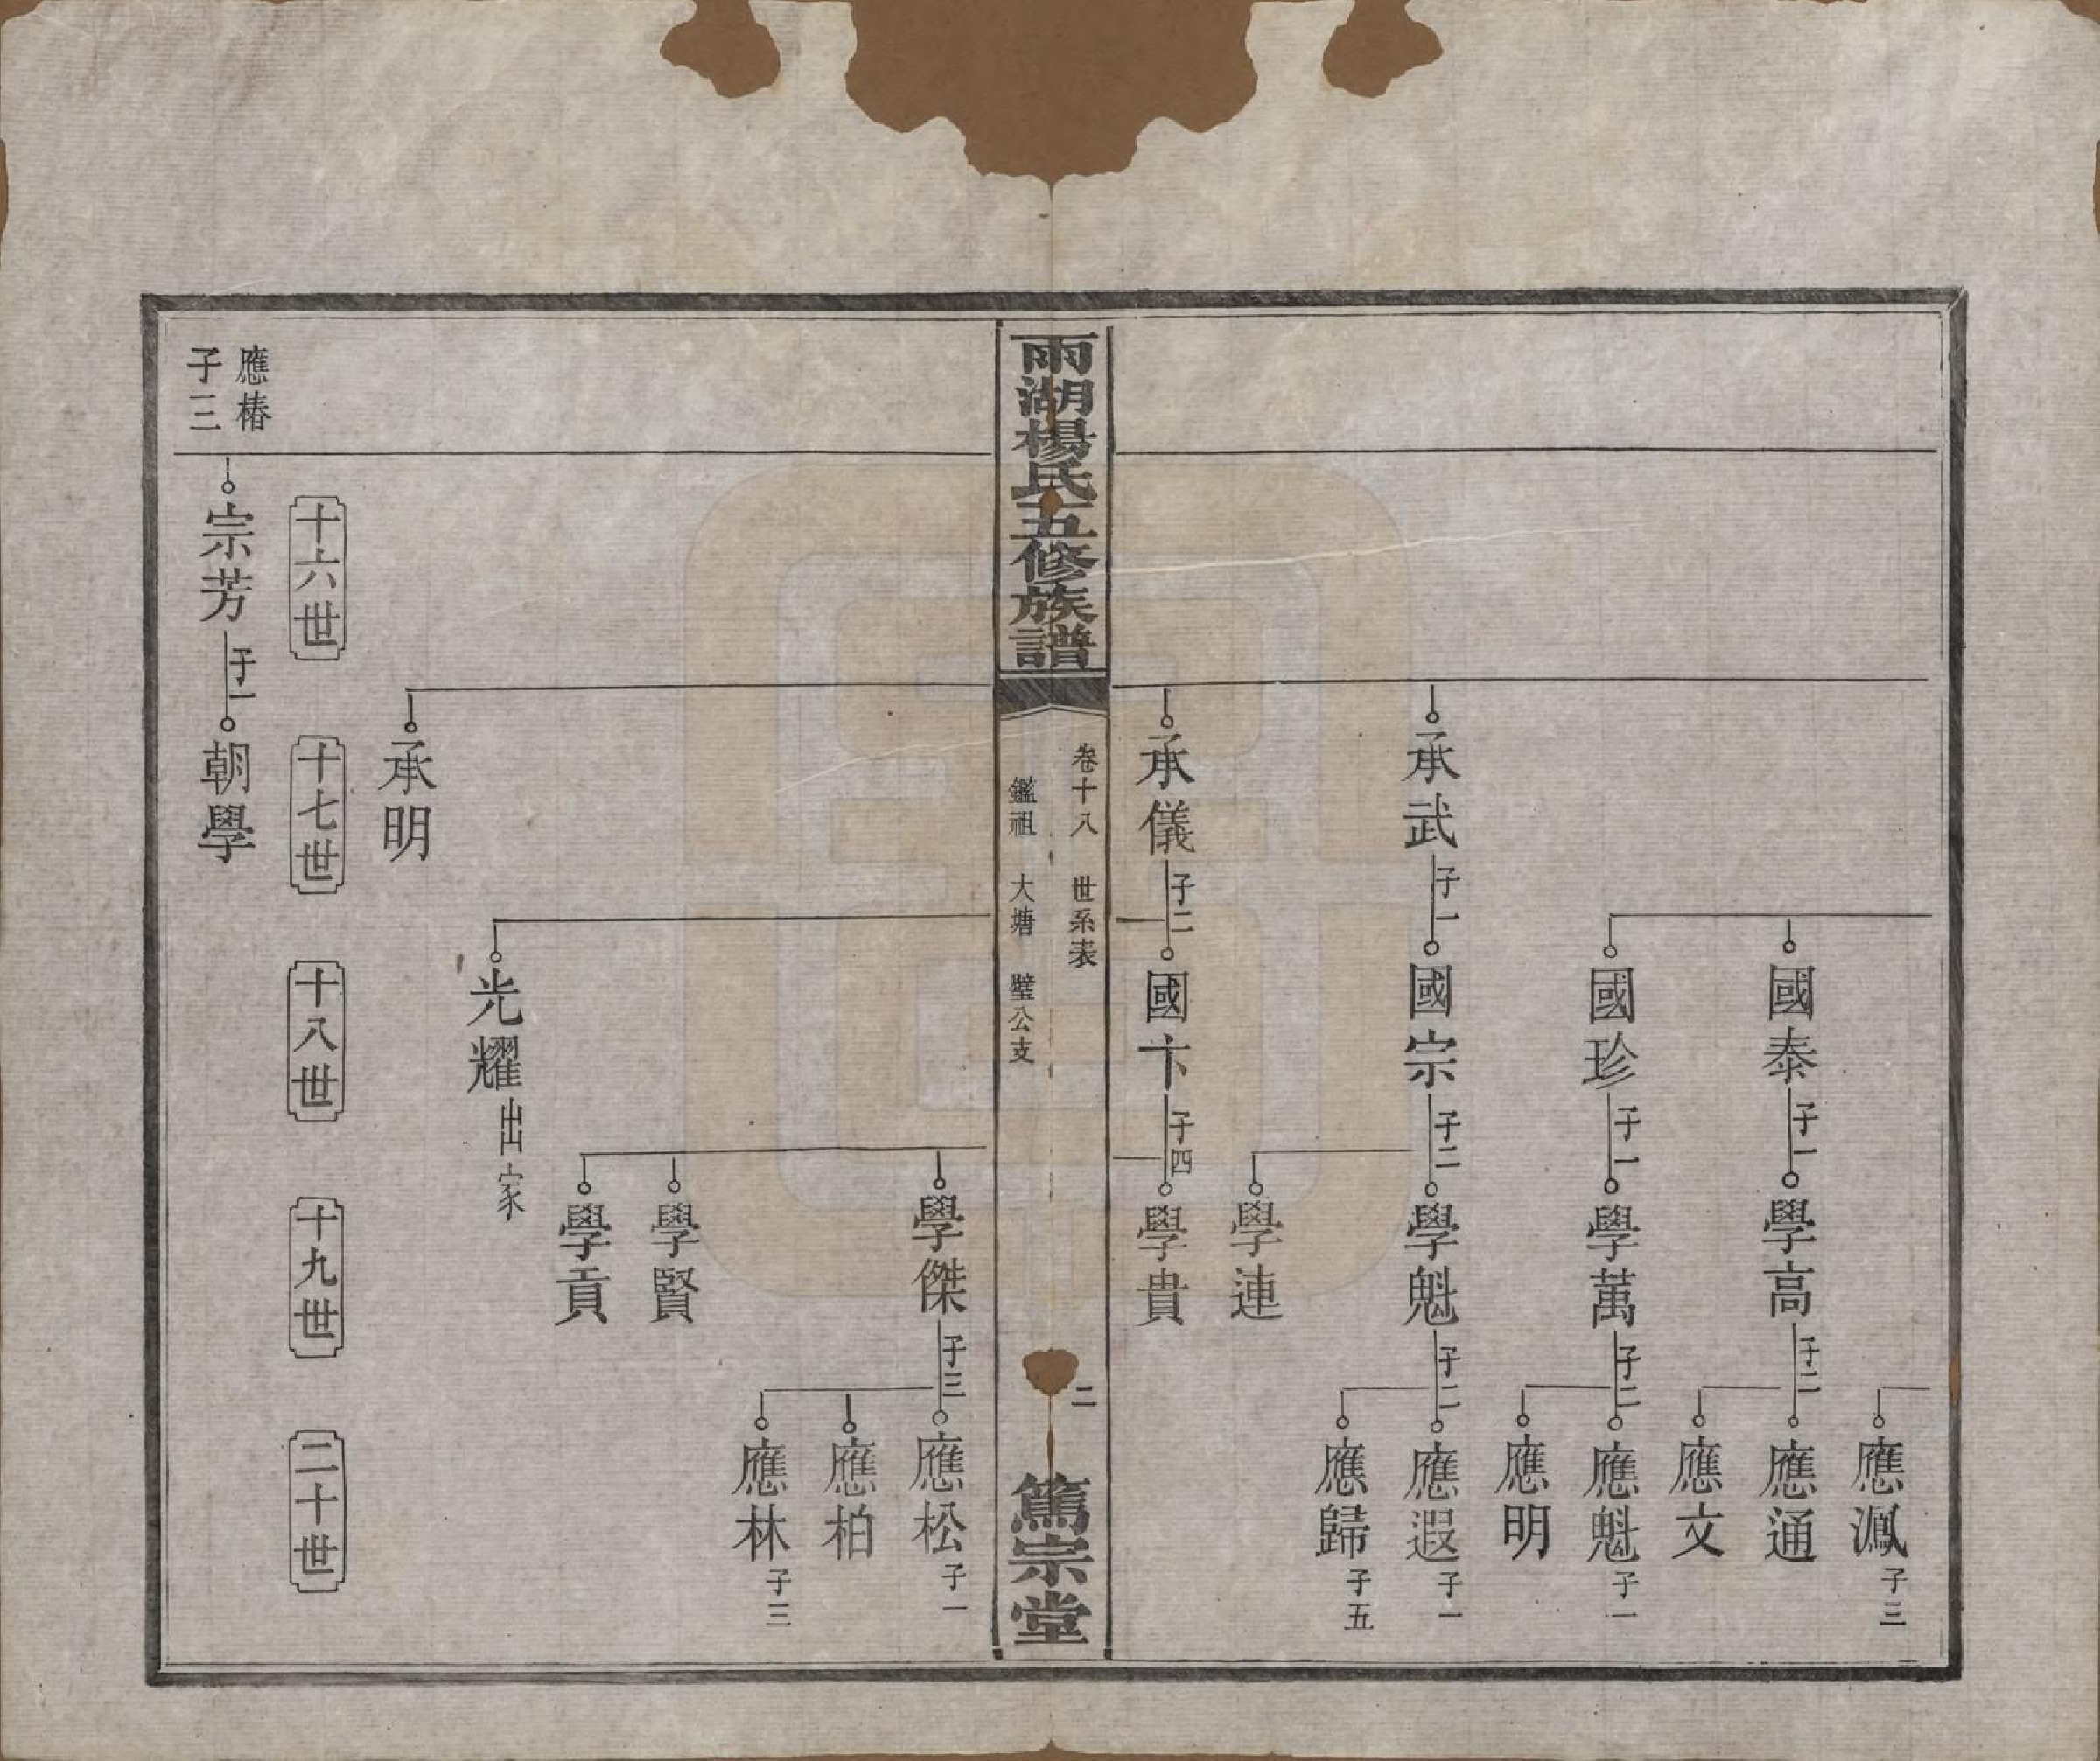 應鳳子三
國泰子一學高子二應通
應文
國珍子一學萬子二應魁子一
應明
承武子一國宗子二學魁子二應遐子一
應歸子五
學連
承儀子二國卞子四學貴
雨湖楊氏五修族譜
卷十八 世系表
鑑祖 大塘 壁公支
二
篤宗堂
學傑子三應松子一
應柏
應林子三
學賢
學貢
光耀出家
承明
十六世
十七世
十八世
十九世
二十世
應椿
子三
宗芳子一朝學